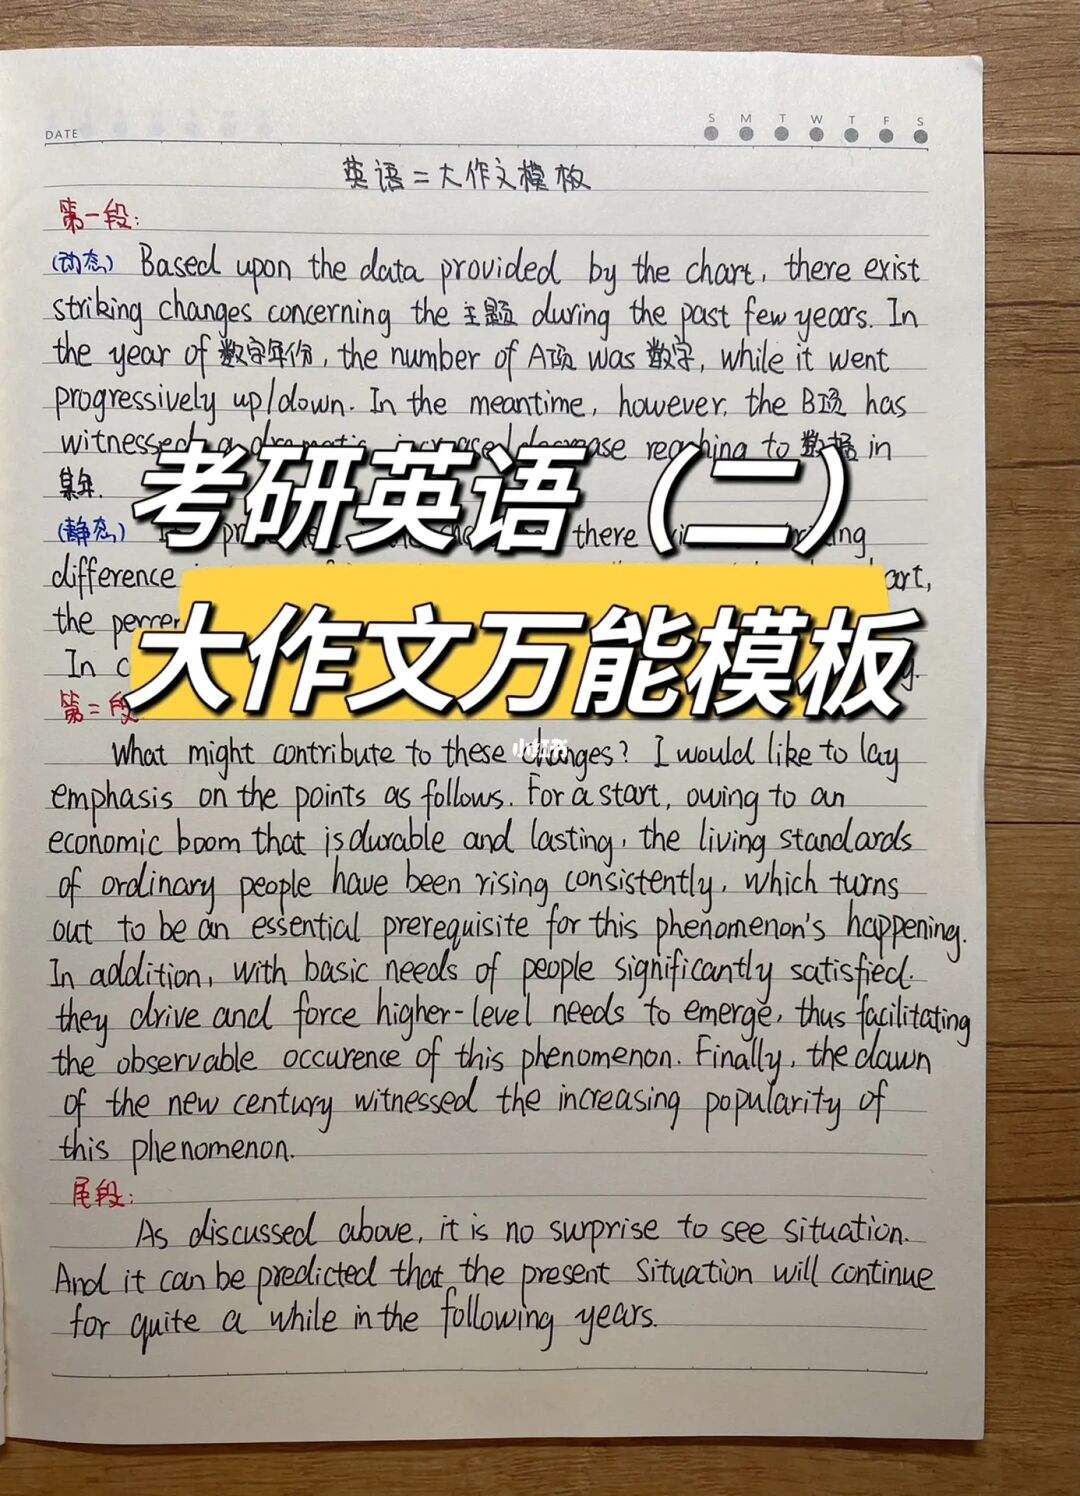 DATE
S M T W T F S
英语二大作文模板
第一段:
(动态) Based upon the data provided by the chart, there exist
striking changes concerning the 主题 during the past few years. In
the year of 数字年份, the number of A项 was 数字, while it went
progressively up/down. In the meantime, however, the B项 has
witnessed a dramatic increase/decrease reaching to 数据 in
某年.
考研英语（二）
(静态) there
difference
the
大作文万能模板
In
第二段
小红书
What might contribute to these changes? I would like to lay
emphasis on the points as follows. For a start, owing to an
economic boom that is durable and lasting, the living standards
of ordinary people have been rising consistently, which turns
out to be an essential prerequisite for this phenomenon's happening.
In addition, with basic needs of people significantly satisfied.
they drive and force higher-level needs to emerge, thus facilitating
the observable occurence of this phenomenon. Finally, the dawn
of the new century witnessed the increasing popularity of
this phenomenon.
尾段:
As discussed above, it is no surprise to see situation.
And it can be predicted that the present situation will continue
for quite a while in the following years.